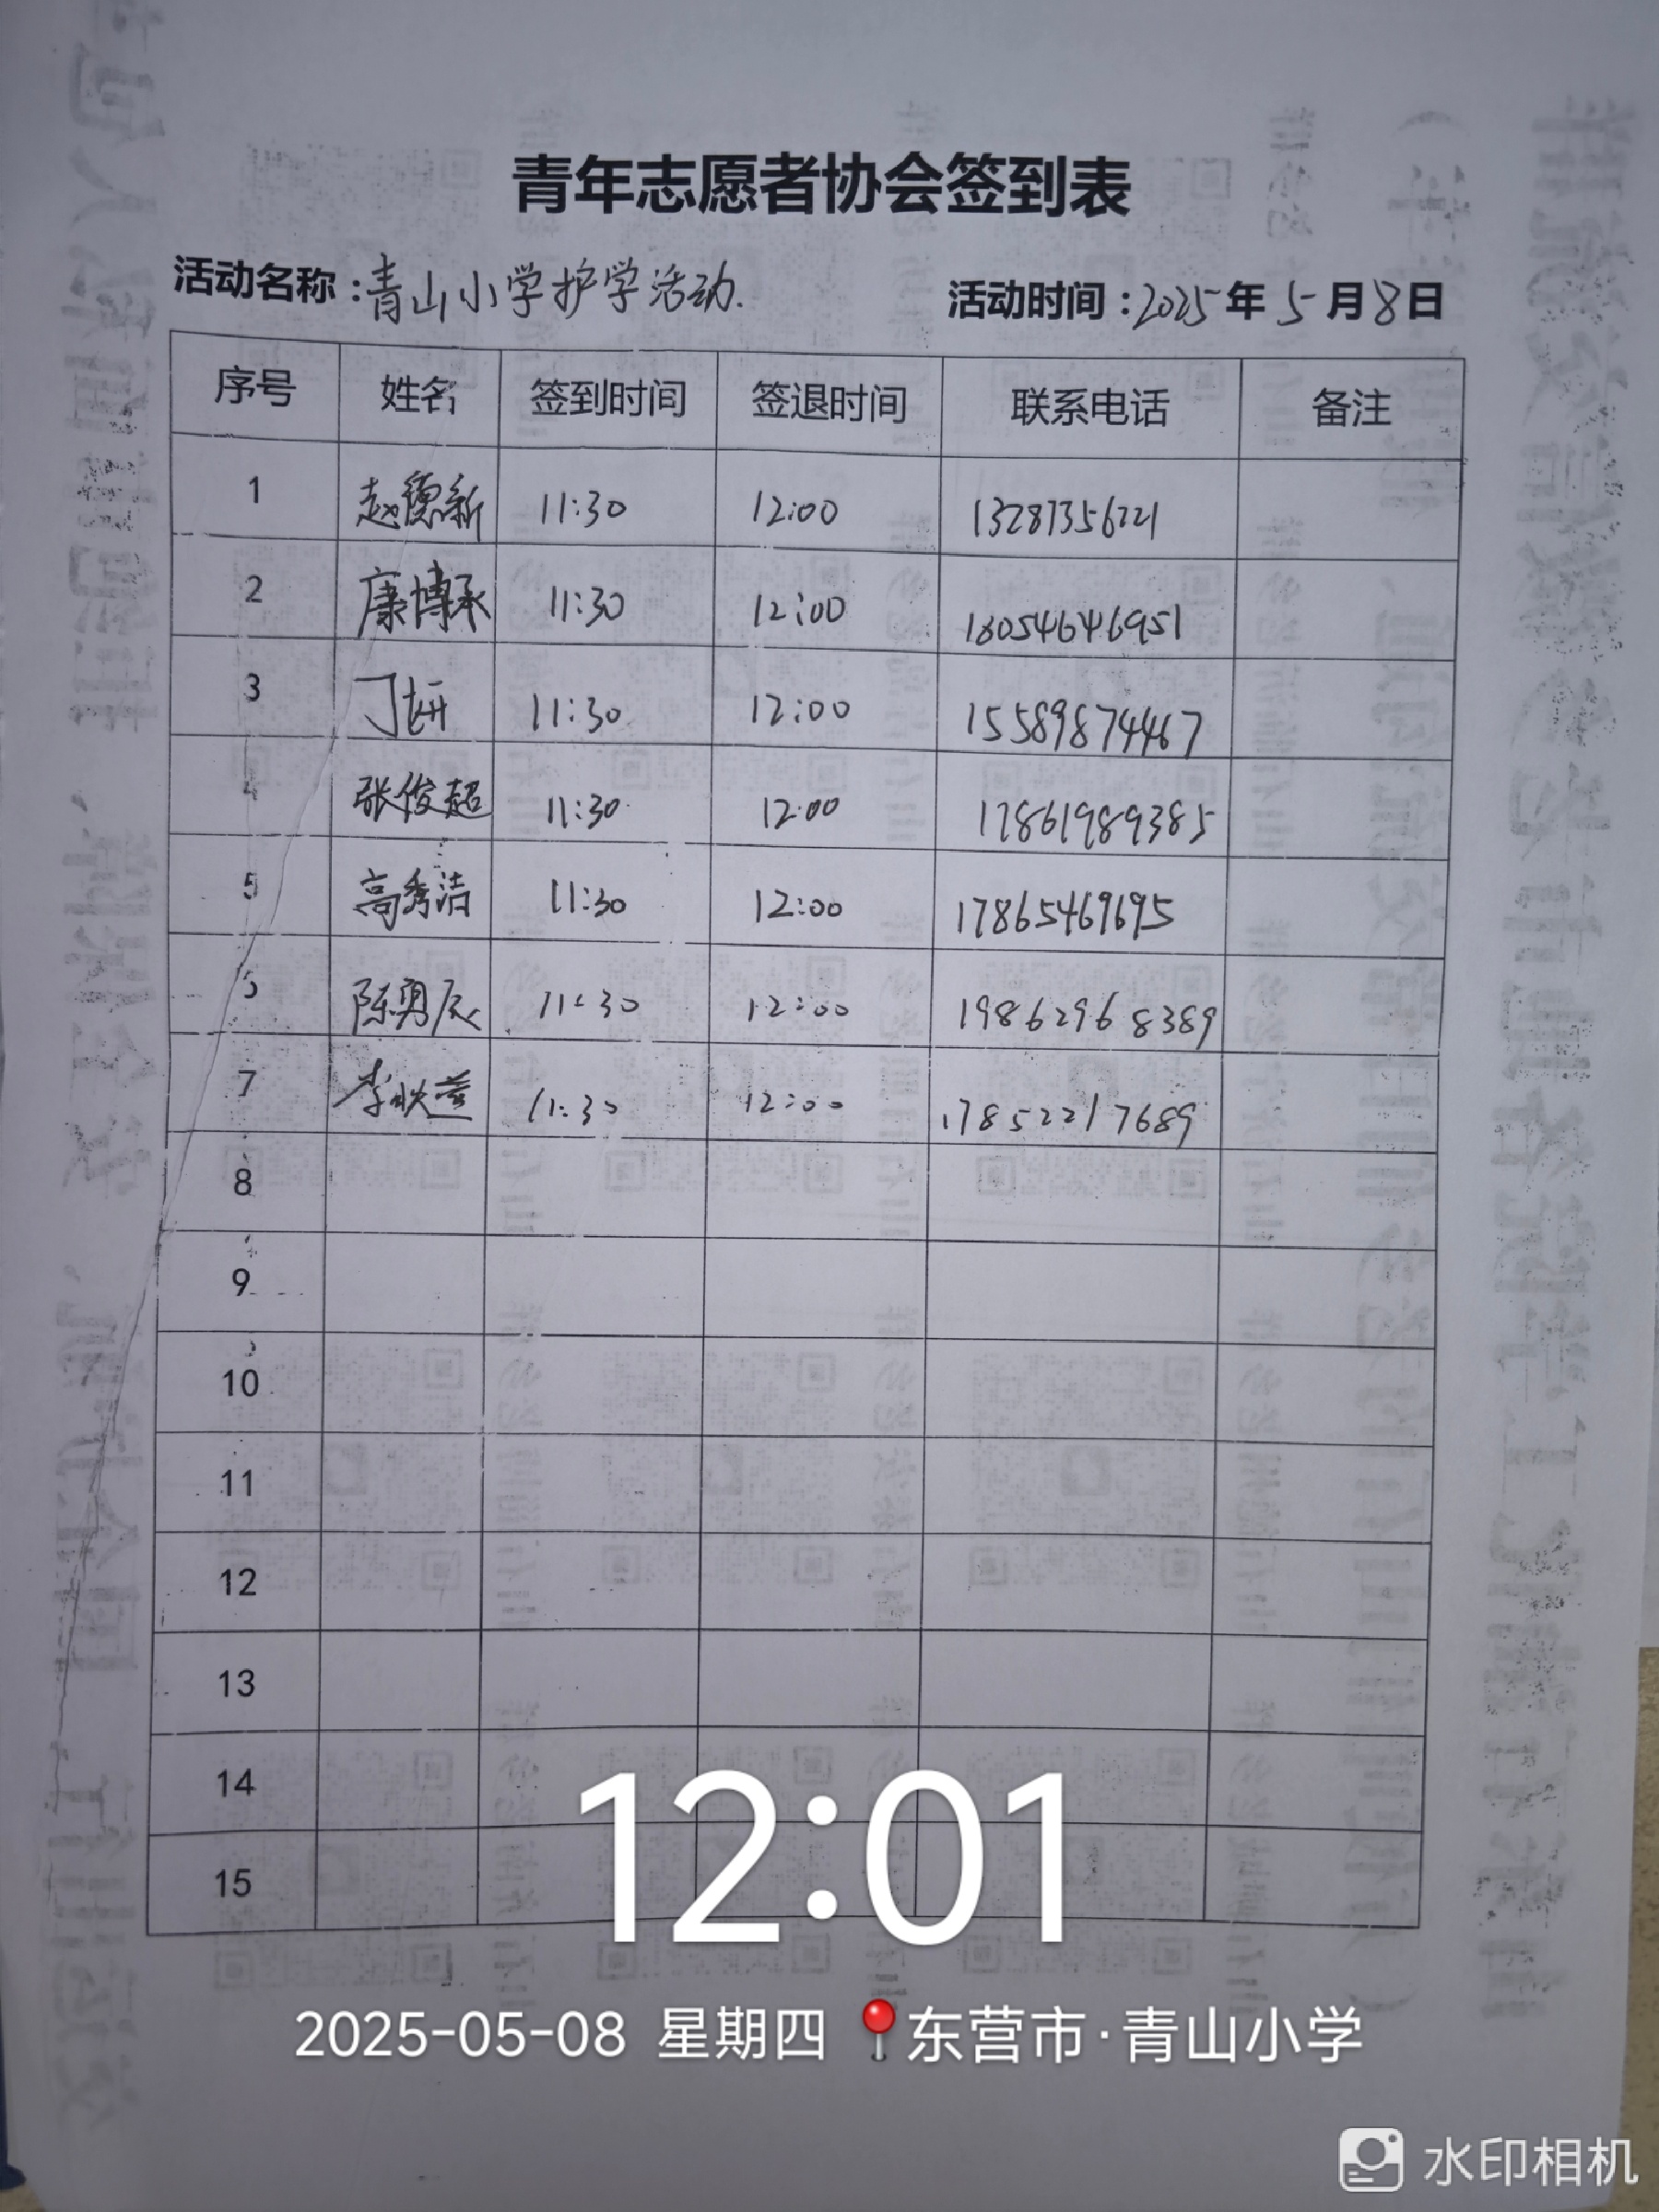 青年志愿者协会签到表
活动名称：青山小学护学活动. 活动时间：2025年5月8日
序号 姓名 签到时间 签退时间 联系电话 备注
1 赵德新 11:30 12:00 13287356221
2 康博承 11:30 12:00 18054646951
3 丁妍 11:30 12:00 15589874467
4 张俊超 11:30 12:00 17861989385
5 高秀洁 11:30 12:00 17865469695
陈勇辰 11:30 12:00 19862968389
7 李 11:30 12:00 17852217689
8
9
10
11
12
13
14
15
12:01
2025-05-08 星期四 东营市·青山小学
水印相机